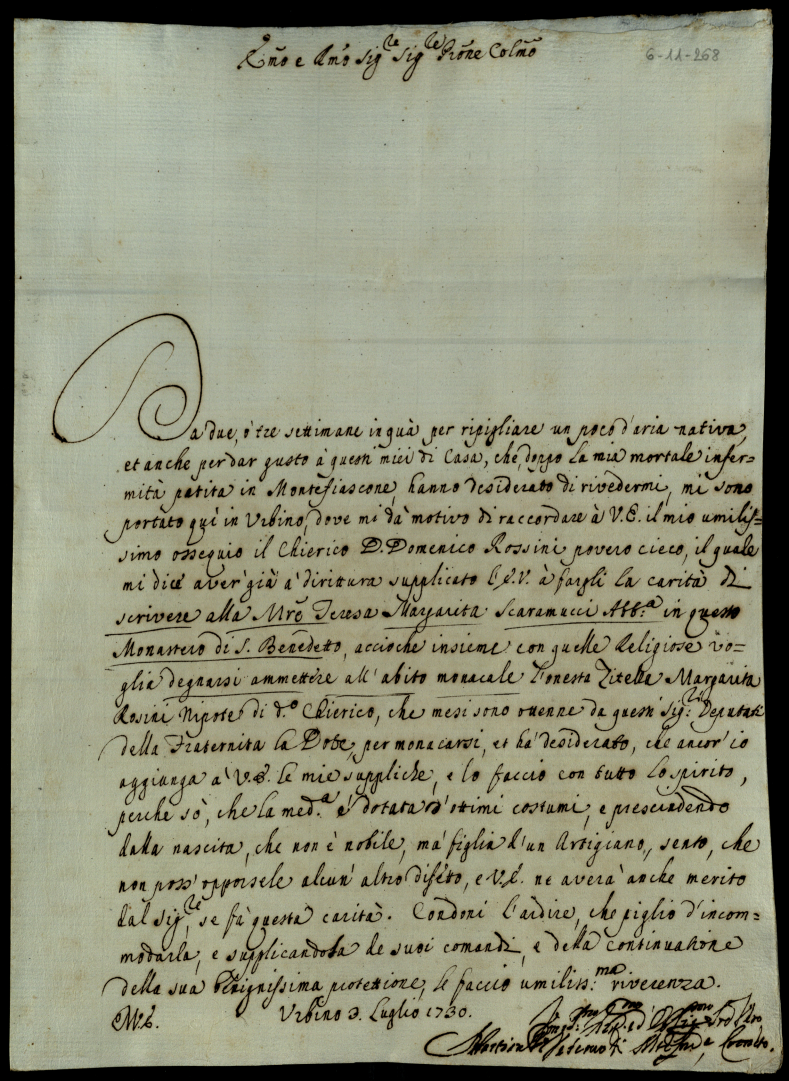 E͠mo e R͠mo Sig.re Sig.re P͠rone Colm͠o
6-11-268
Da due, ò tre settimane in quà per ripigliare un poco d'aria nativa,
et anche per dar gusto à questi miei di Casa, che, doppo la mia mortale infer=
mità patita in Montefiascone, hanno desiderato di rivedermi, mi sono
portato quì in Urbino, dove mi dà motivo di raccordare à V.E. il mio umilis=
simo ossequio il Chierico D. Domenico Rossini povero cieco, il quale
mi dice aver già à dirittura supplicato l'E.V. à fargli la carità di
scrivere alla Mr͠e Teresa Margarita Scaramucci Abb.a in questo
Monastero di S. Benedetto, accioche insieme con quelle Religiose vo=
glia degnarsi ammettere all'abito monacale l'onesta Zitella Margarita
Rosini Nipote di d.o Chierico, che mesi sono ottenne da questi Sig.ri Deputati
della Fraternita la Dote, per monacarsi, et hà desiderato, che ancor'io
aggiunga à V.E. le mie suppliche, e lo faccio con tutto lo spirito,
perche sò, che la med.a è dotata d'ottimi costumi, e prescindendo
dalla nascita, che non è nobile, mà figlia d'un Artigiano, sento, che
non poss'opporsele alcun'altro difetto, e V.E. ne averà anche merito
dal Sig.re, se fà questa carità. Condoni l'ardire, che piglio d'incom=
modarla, e supplicandola de suoi comandi, e della continuatione
della sua benignissima protettione, le faccio umiliss.ma riverenza.
Urbino 3. Luglio 1730.